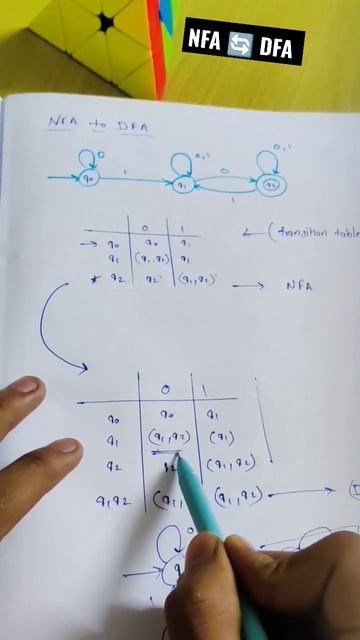 NFA 🔄 DFA
NFA to DFA
0 0,1 0,1
q0 1 q1 0 q2
1
0 1
→ q0 q0 q1 ← (transition table
q1 (q1,q2) q1
* q2 q2 (q1,q2) → NFA
0 1
q0 q0 q1
q1 (q1,q2) (q1)
q2 (q1,q2)
q1q2 (q1, (q1,q2) →
0